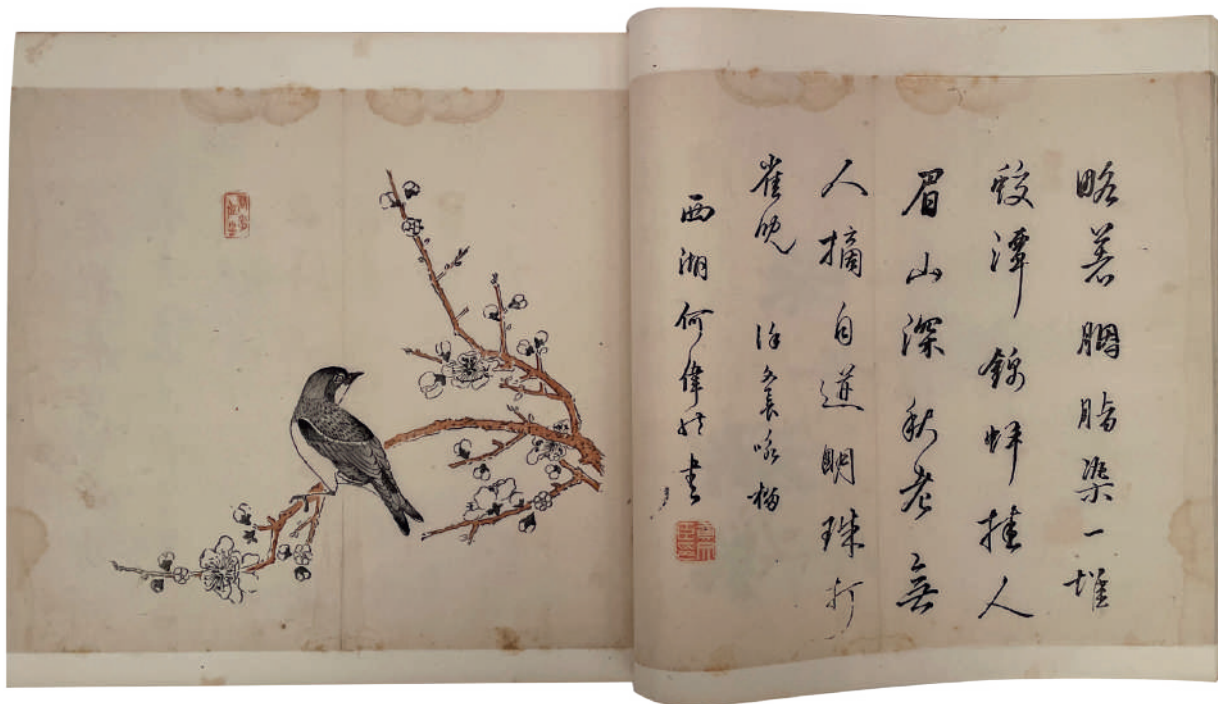 略著胭脂染一堆
蛟潭錦蚌挂人
眉山深秋老無
人摘自迸明珠打
雀晚 徐文長咏榴
西湖何偉然書